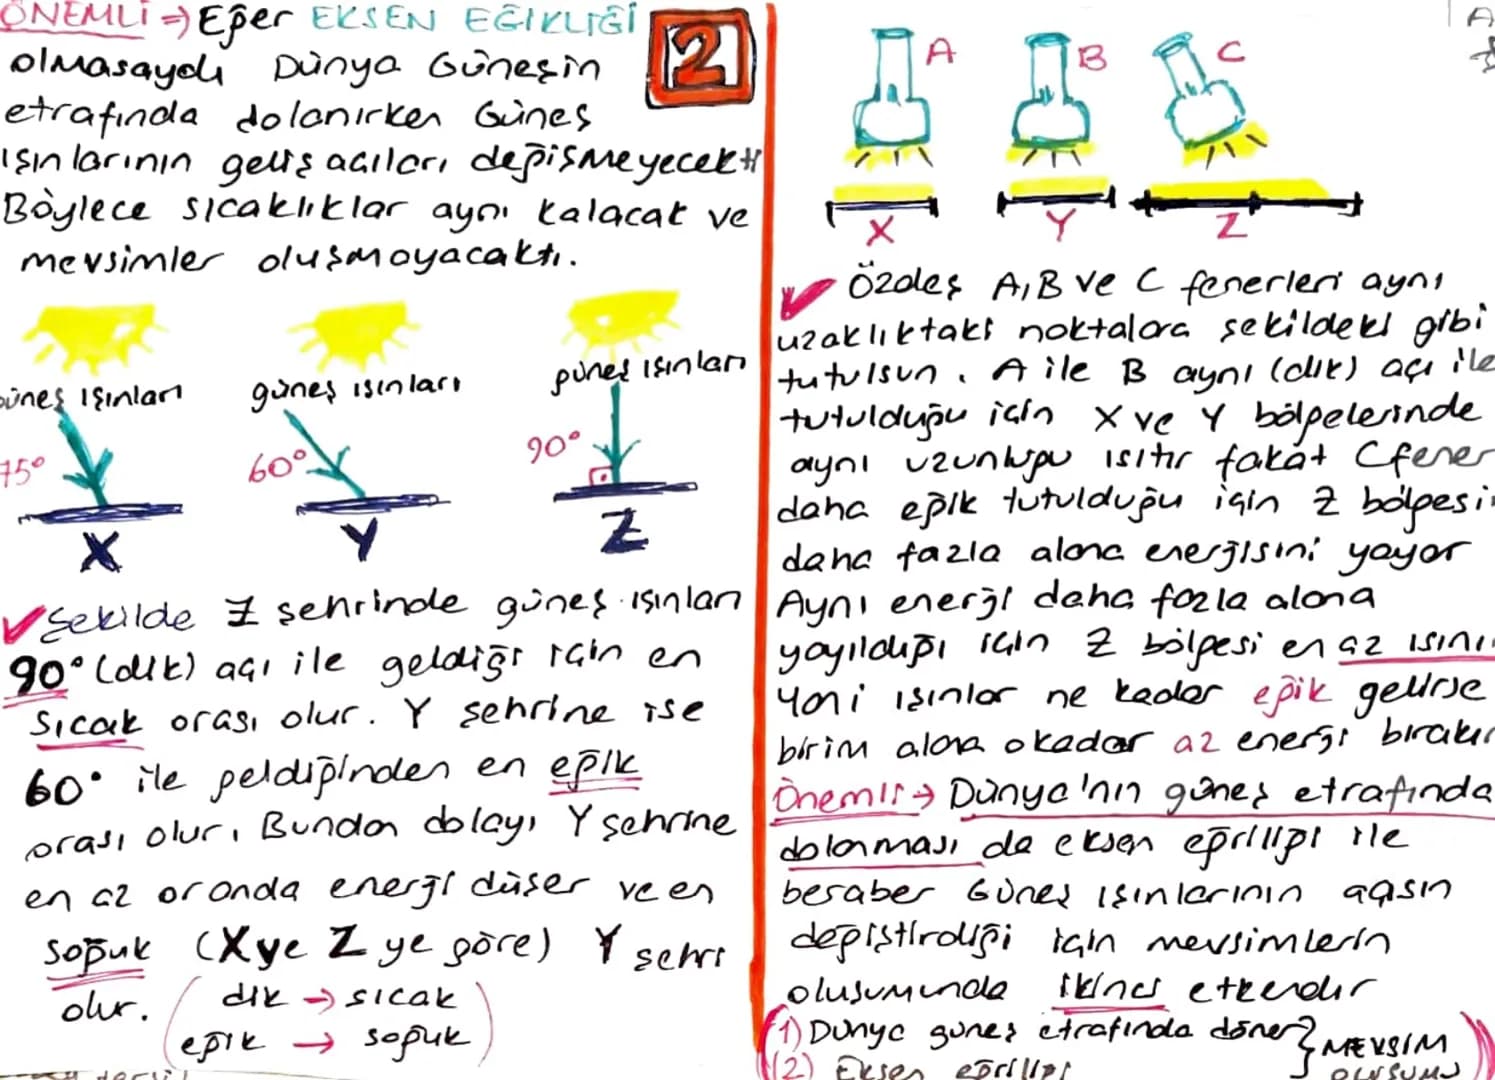 ÖNEMLİ → Eğer EKSEN EĞİKLİĞİ
olmasaydı Dünya Güneşin
etrafında dolanırken Güneş
ışınlarının geliş açıları değişmeyecekti
Böylece sıcaklıklar aynı kalacak ve
mevsimler oluşmayacaktı.
2
güneş ışınları
güneş ışınları
güneş ışınları
75°
60°
90°
X
Y
Z
✓ Şekilde Z şehrinde güneş ışınları
90° (dik) açı ile geldiği için en
sıcak orası olur. Y şehrine ise
60° ile geldiğinden en eğik
orası olur, Bundan dolayı Y şehrine
en az oranda enerji düşer ve en
soğuk (X ye Z ye göre) Y şehri
olur. (dik → sıcak
eğik → soğuk)
A
B
C
X
Y
Z
✓ Özdeş A, B ve C fenerleri aynı
uzaklıktaki noktalara şekildeki gibi
tutulsun. A ile B aynı (dik) açı ile
tutulduğu için X ve Y bölgelerinde
aynı uzunluğu ısıtır fakat C fener
daha eğik tutulduğu için Z bölgesi
daha fazla alana enerjisini yayar
Aynı enerji daha fazla alana
yayıldığı için Z bölgesi en az ısınır
Yani ışınlar ne kadar eğik gelirse
birim alana o kadar az enerji bırakır
Önemli → Dünya'nın güneş etrafında
dolanması da eksen eğrilliği ile
beraber Güneş ışınlarının açısın
değiştirdiği için mevsimlerin
oluşumunda ikinci etkendir
(1) Dünya güneş etrafında döner
(2) Eksen eğrilliği
} MEVSİM
OLUŞUMU